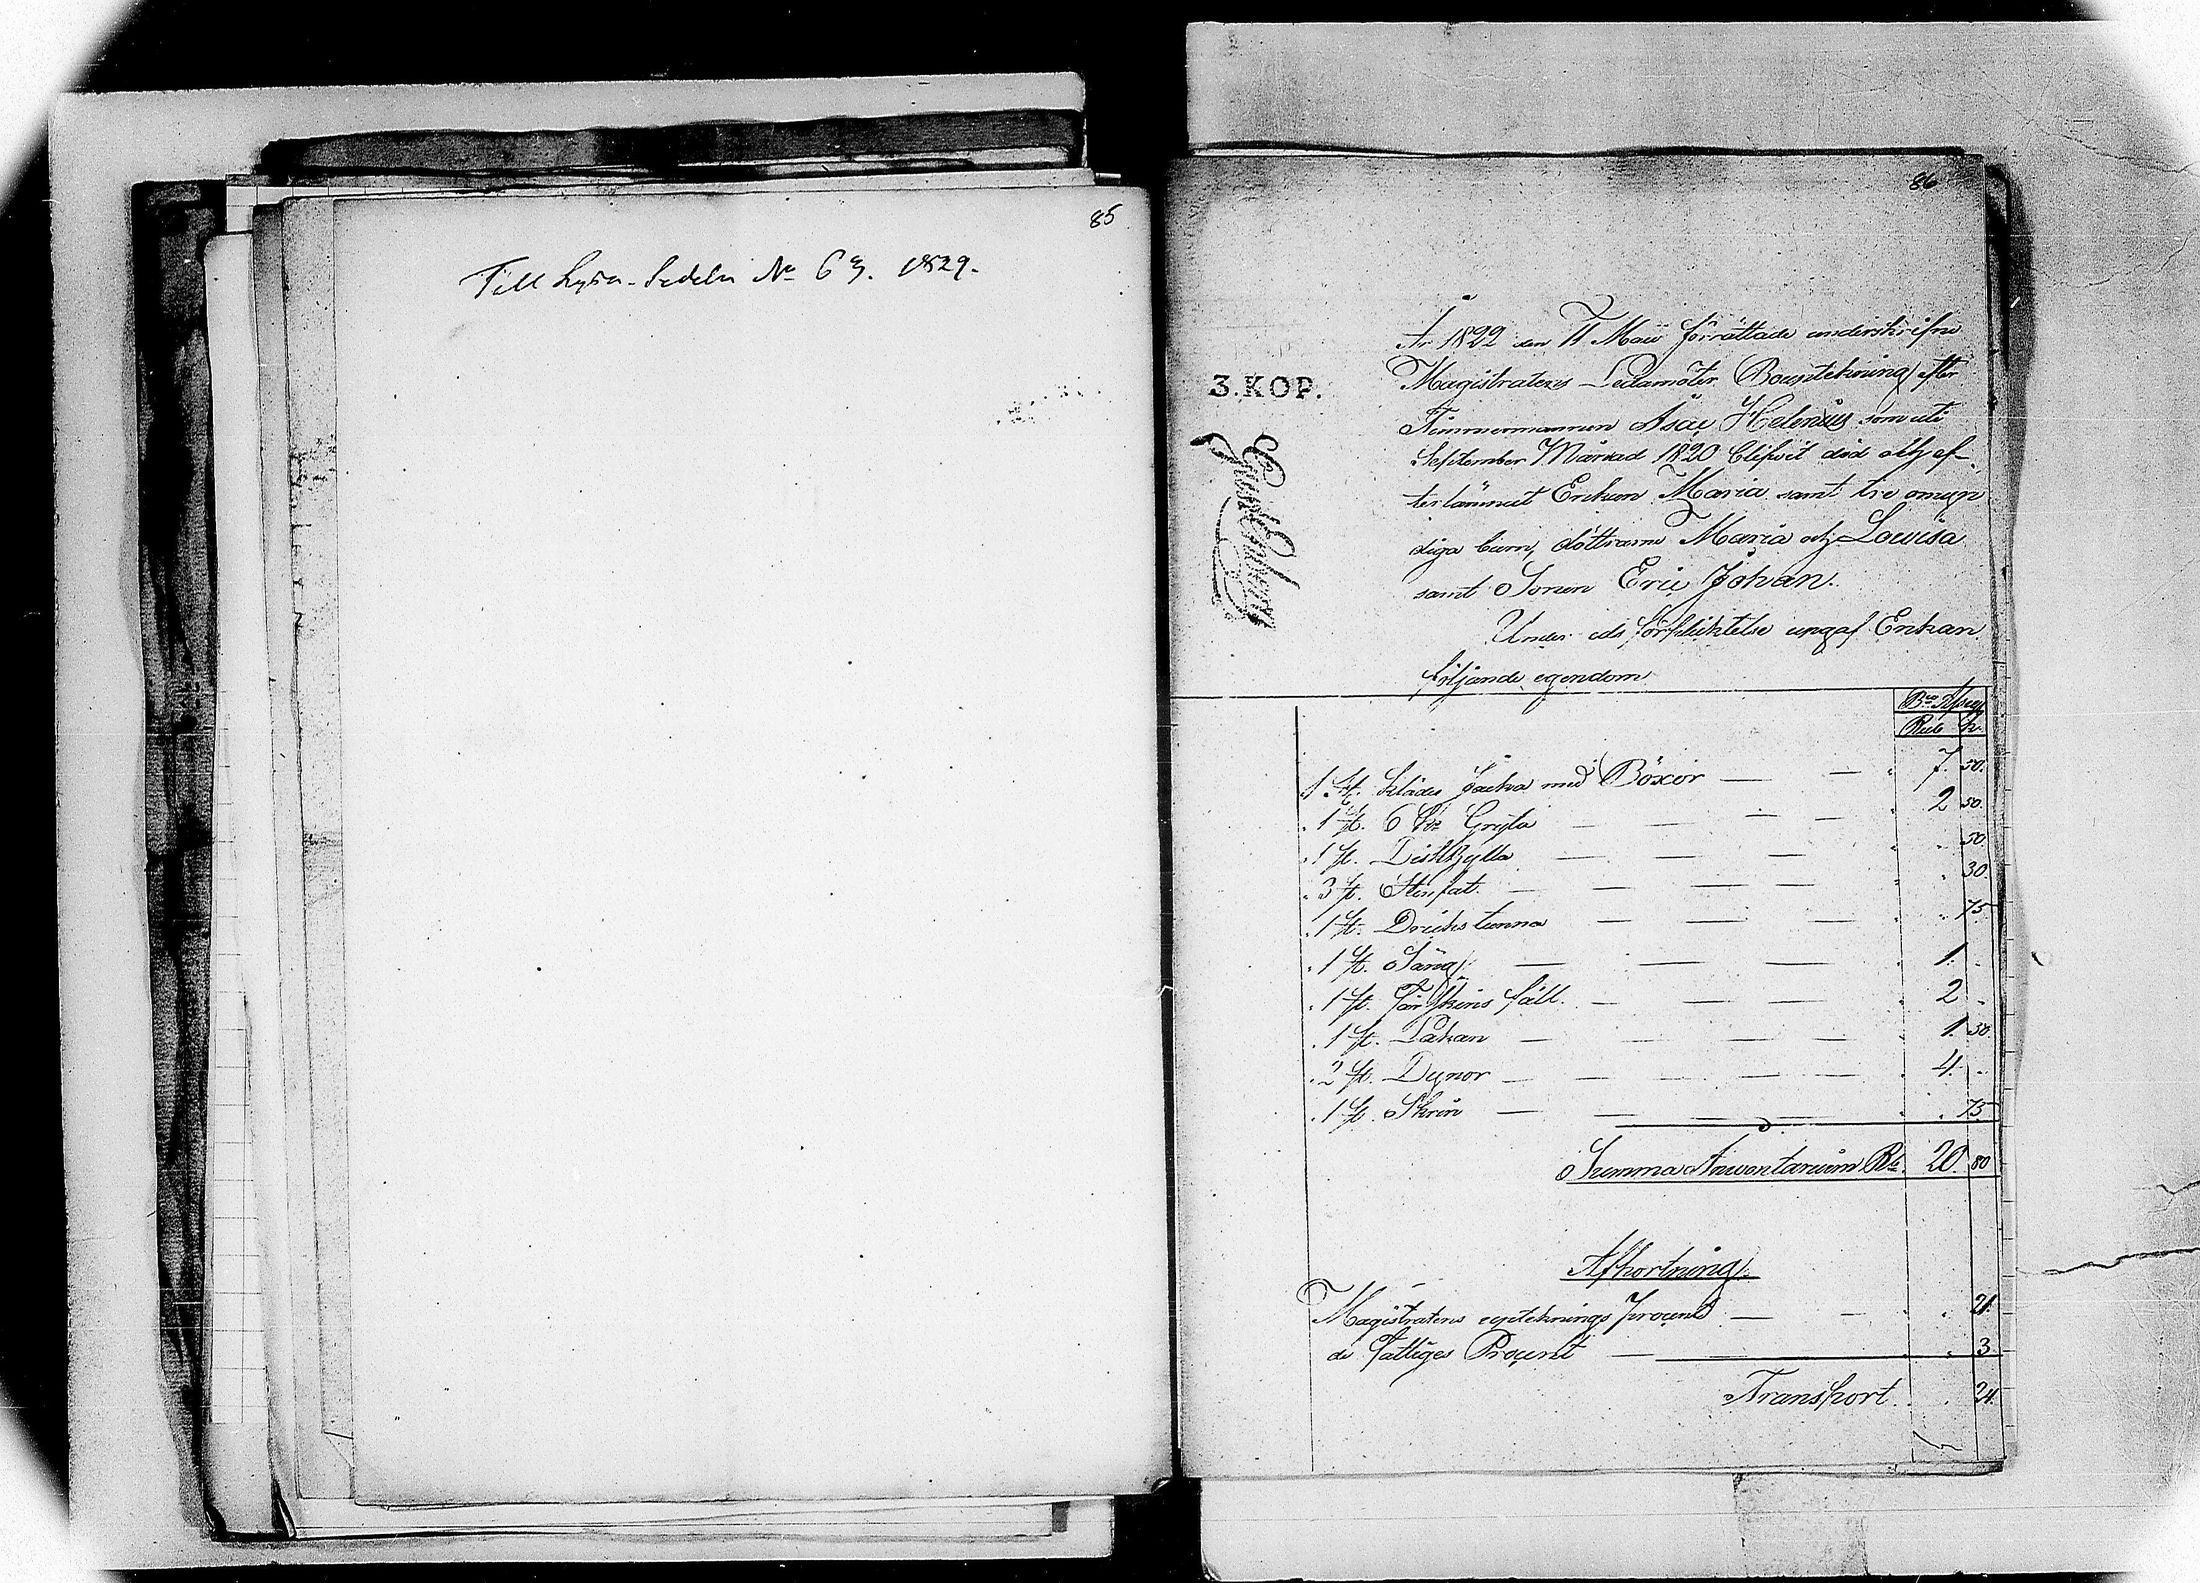 85
Till Lysn. Sedeln No 63. 1829.
86
3.KOP.
År 1822 den 11 Maii förrättade underskrifne
Magistratens Ledamöter Bouptekning efter
Timmermannen Isac Helenius som uti
September Månad 1820 blifvit död och ef-
terlämnat Enkan Maria samt tre omyn
diga barn, döttrarne Maria och Lovisa
samt Sonen Eric Johan.
Under eds förpliktelse upgaf Enkan
följande egendom
Bco Assig
Rub k.
1 st. klädes Jacka med Böxor — — 7. 50.
1 st. 6 Gryta — — — — 2 50.
1 st. Diskhylla — — — — 50.
3 st. Stenfat — — — — 30.
1 st. Dricks tunna — — — — 75
1 st. Säng — — — — 1. -
1 st. Fårskins fäll. — — — — 2 -
1 st. Lakan — — — — 1. 50.
2 st. Dynor — — — — 4. -
1 st. Skrin — — — — 75
Summa Inventarium Rb. 20. 80
Afkortning
Magistratens uptecknings procent — — 21.
de fattiges Procent — 3.
Transport . . 24.